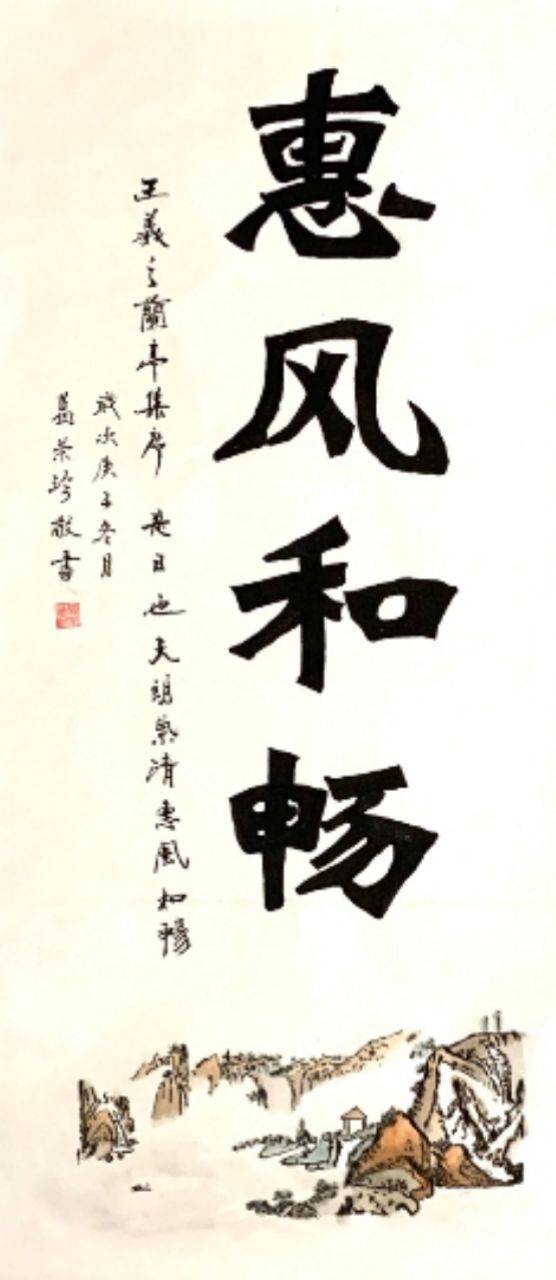 惠风和畅
王羲之蘭亭集序 是日也天朗氣清惠風和暢
歲次庚子冬月
葛荣珍敬書